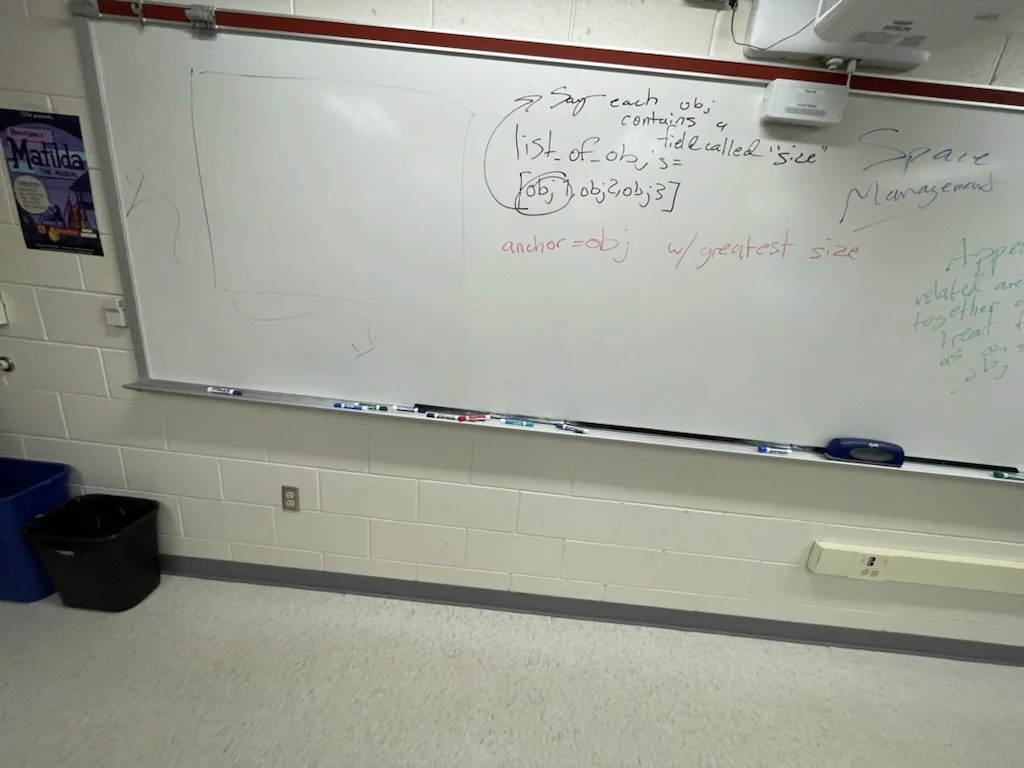 Matilda
THE MUSICAL
Say each obj
contains a
field called "size"
list_of_obj's=
[obj 1, obj2, obj3]
anchor = obj w/ greatest size
Space
Management
related
together
treat
as
obj
EPSON